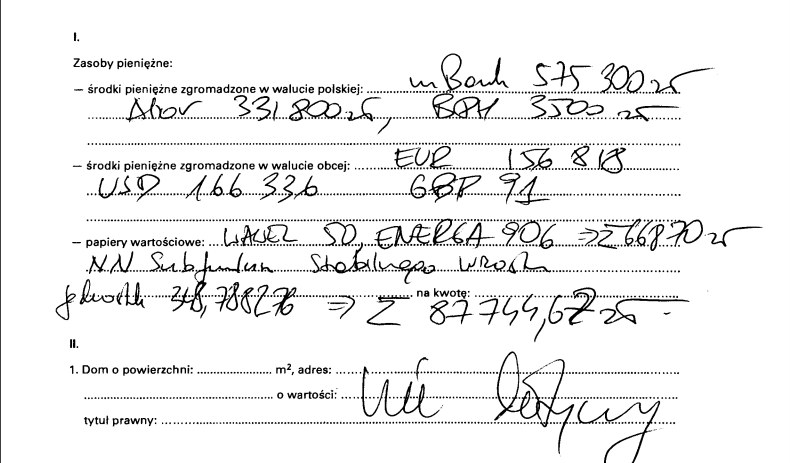 I.
Zasoby pieniężne:
— środki pieniężne zgromadzone w walucie polskiej: mBank 575 300 zł
Alior 331 800 zł, BPH 3500 zł
— środki pieniężne zgromadzone w walucie obcej: EUR 156 818
USD 166 336 GBP 91
— papiery wartościowe: WAWEL 50, ENERGA 906 => Σ 66870 zł
NN Subfundusz Stabilnego Wzrostu
jednostek 348,788276 => Σ na kwotę: 87 744,67 zł
II.
1. Dom o powierzchni: m², adres:
o wartości: Nie dotyczy
tytuł prawny: